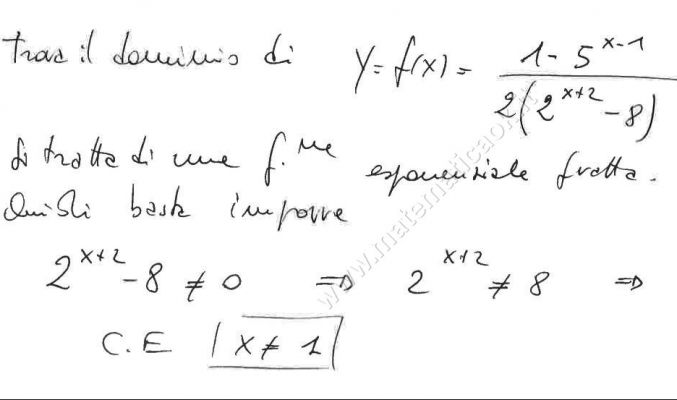 trova il dominio di y = f(x) = \frac{1 - 5^{x-1}}{2(2^{x+2} - 8)}
si tratta di una f.ne esponenziale fratta.
Quindi basta imporre
2^{x+2} - 8 ≠ 0 ⇒ 2^{x+2} ≠ 8 ⇒
C.E x ≠ 1